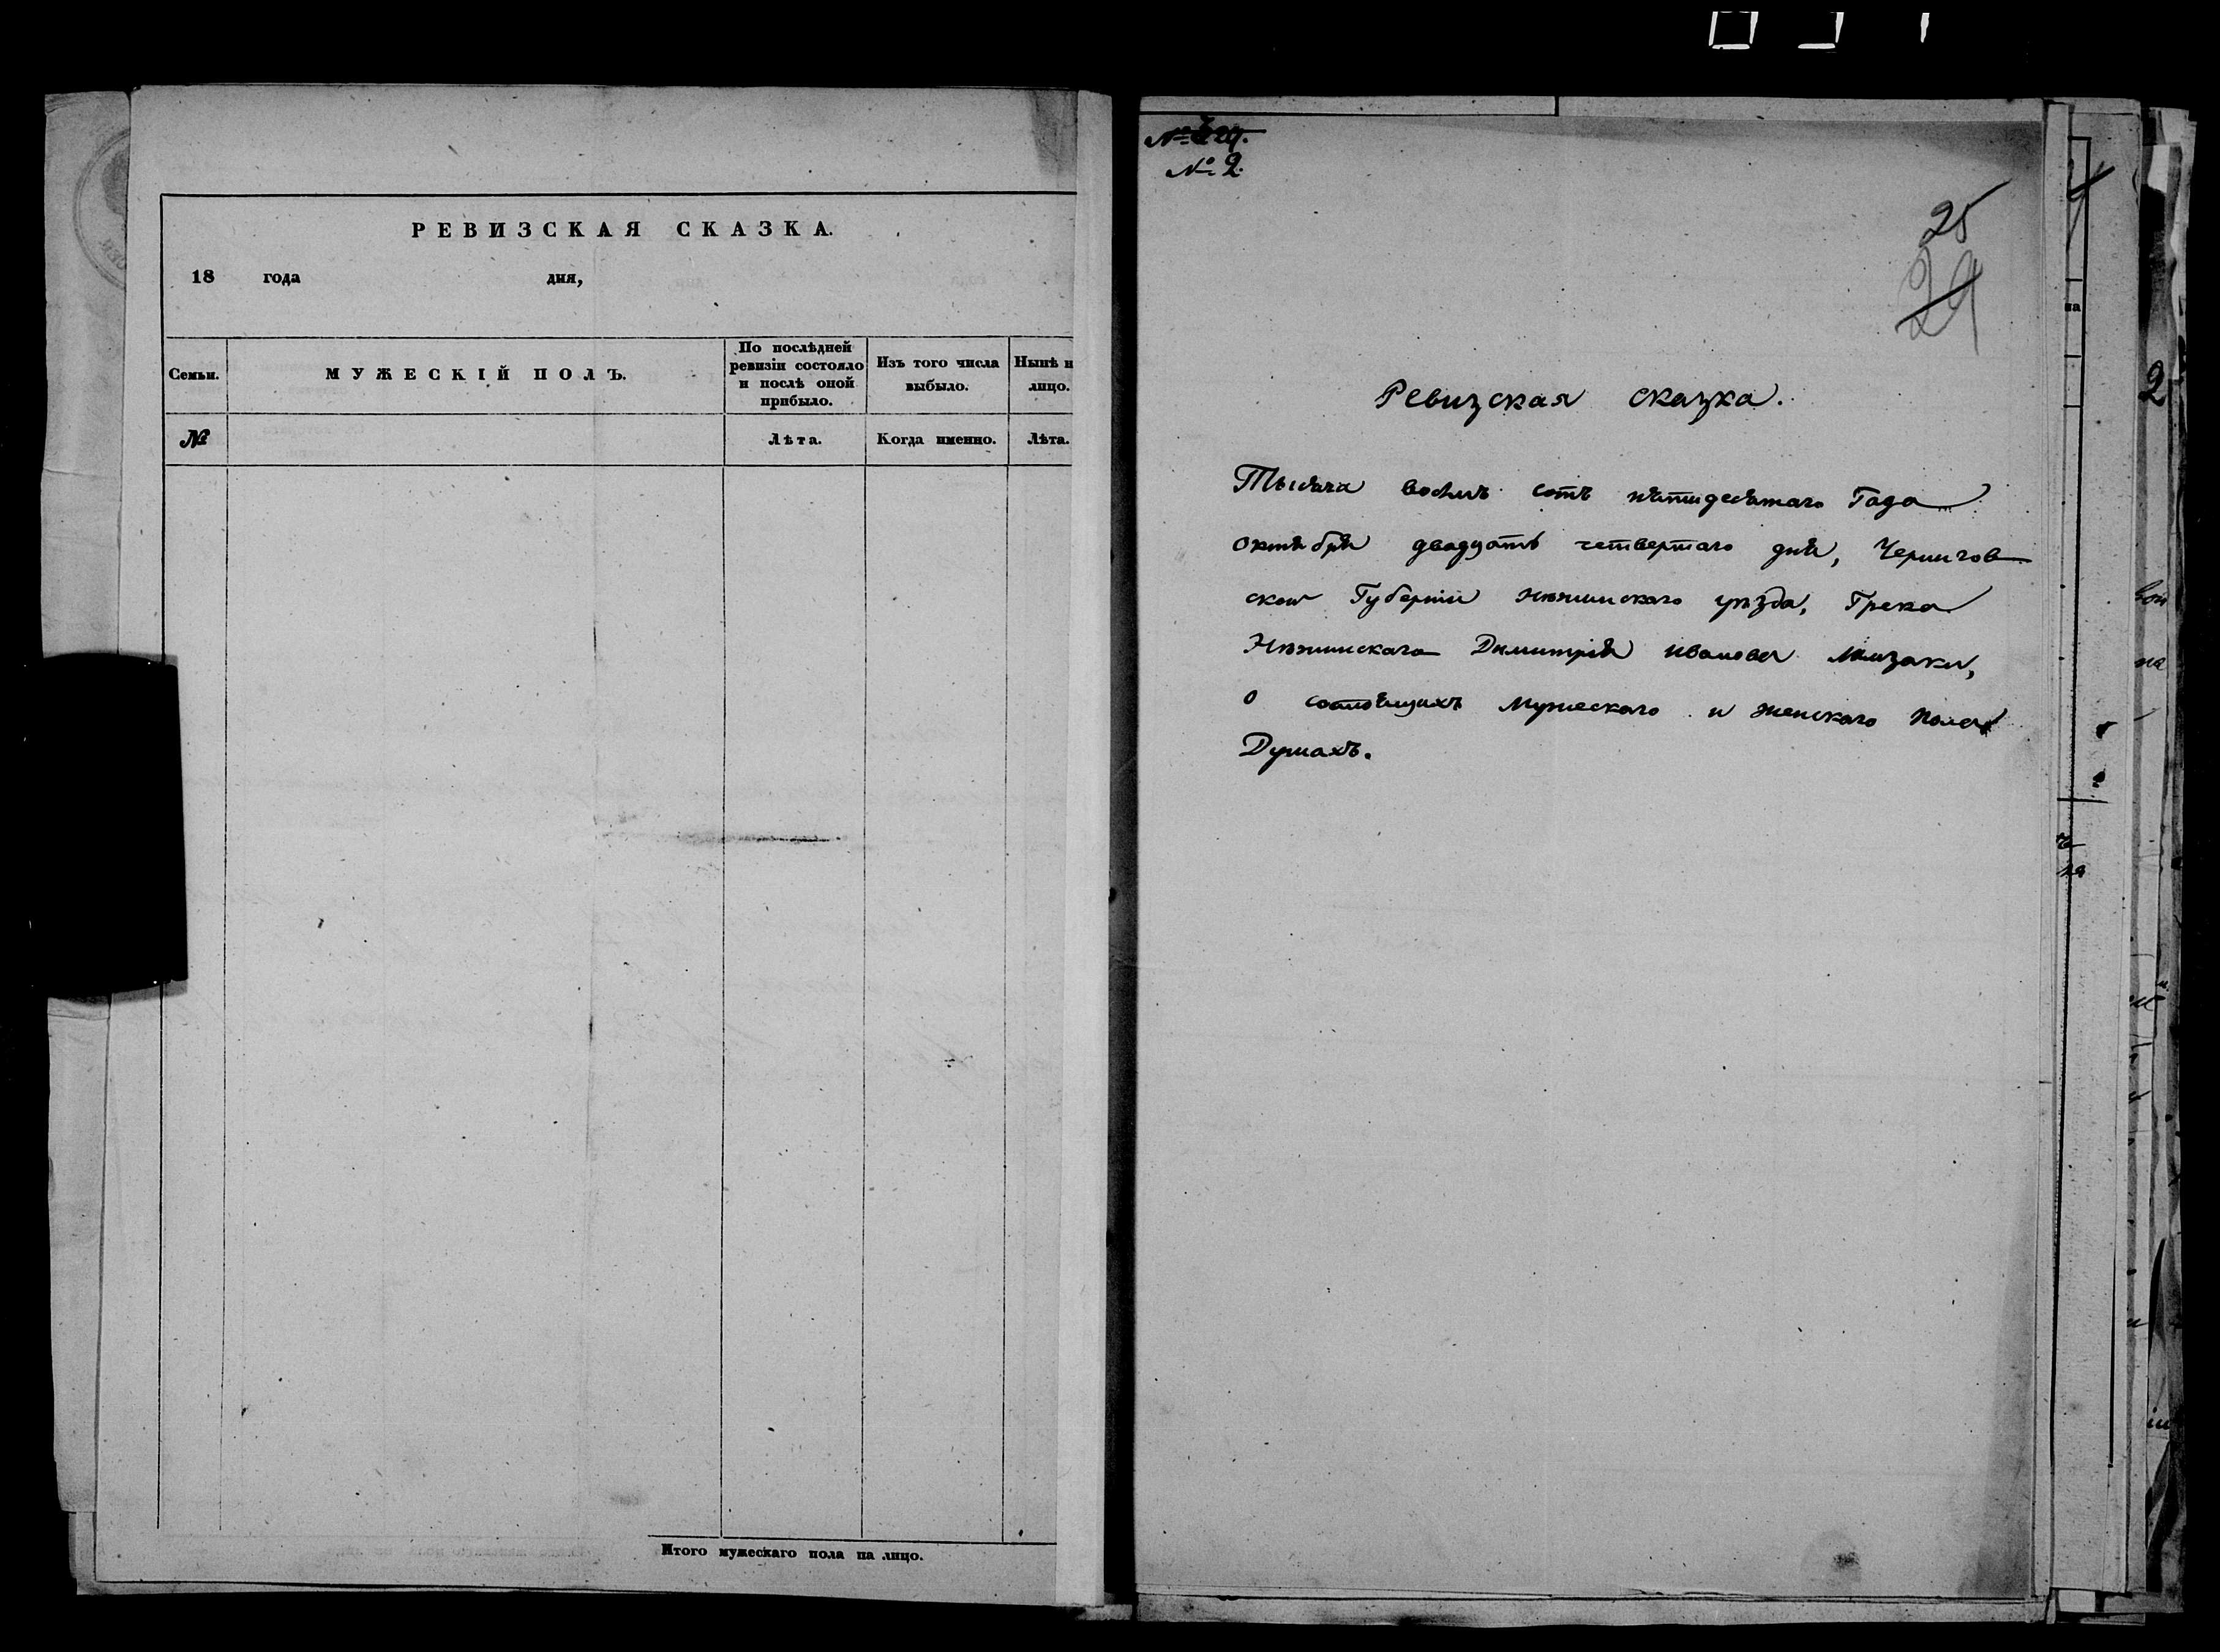 РЕВИЗСКАЯ СКАЗКА.
18 года дня,
Семьи.
МУЖЕСКІЙ ПОЛЪ.
По послѣдней
ревизіи состояло
и послѣ оной
прибыло.
Изъ того числа
выбыло.
Нынѣ н
лицо.
№
Лѣта.
Когда именно.
Лѣта.
Итого мужескаго пола на лицо.
№ 2.
25
24
Ревизская сказка.
Тысяча восемь сотъ пятидесятаго Года
октября двадцать четвертаго дня, Чернигов
ской Губерніи нѣжинскаго уѣзда, Грека
Нѣжинскаго Димитрія иванова
о состоящихъ мужескаго и женскаго пола
Душахъ.
на
2